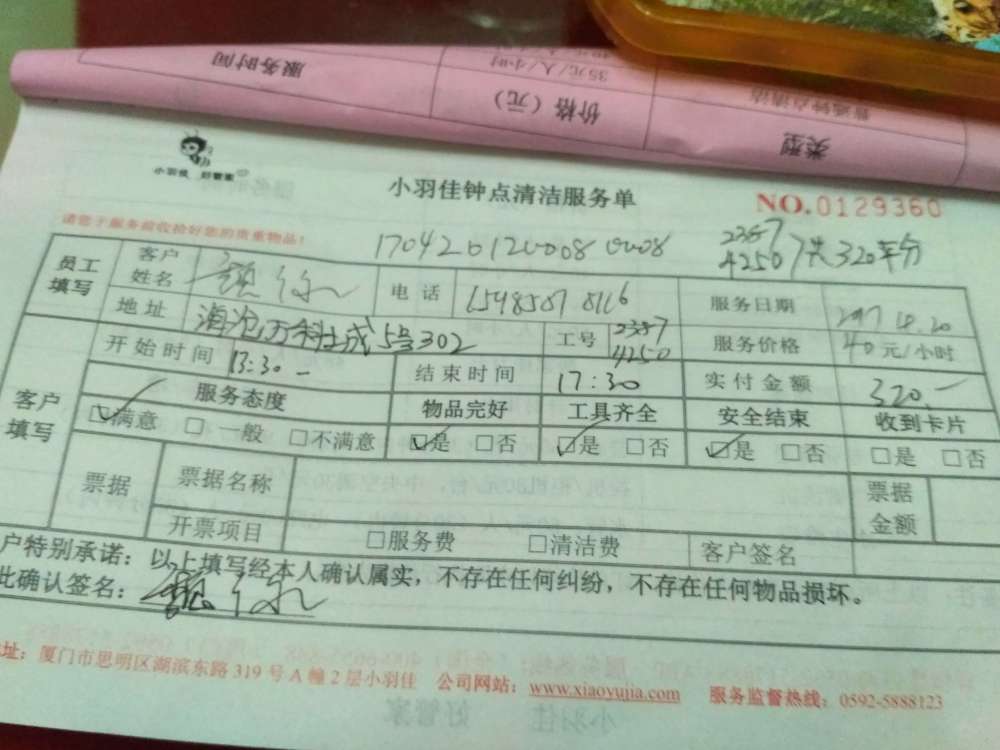 服务时间
35元/人/小时
价格(元)
普通钟点清洁
类型
小羽佳 好管家
小羽佳钟点清洁服务单
NO.0129360
请您于服务前收拾好您的贵重物品!
170420120008 0008
2387
4250 共320平分
员工填写
客户姓名
电话
服务日期
2017.4.20
地址 海沧万科城5号302
工号 2387
4250
服务价格 40元/小时
客户填写
开始时间 13:30-
结束时间 17:30
实付金额 320.-
服务态度 物品完好 工具齐全 安全结束 收到卡片
☑满意 □一般 □不满意 ☑是 □否 ☑是 □否 ☑是 □否 □是 □否
票据 票据名称 票据金额
开票项目 □服务费 □清洁费 客户签名
户特别承诺:以上填写经本人确认属实,不存在任何纠纷,不存在任何物品损坏。
此确认签名:
址:厦门市思明区湖滨东路319号A幢2层小羽佳 公司网站:www.xiaoyujia.com 服务监督热线:0592-5888123